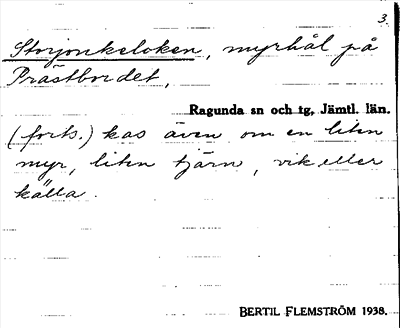 3.
Storjonkeloken, myrhål på
Prästbordet,
Ragunda sn och tg, Jämtl. län.
(forts.) kas även om en liten
myr, liten tjärn, vik eller
källa.
BERTIL FLEMSTRÖM 1938.